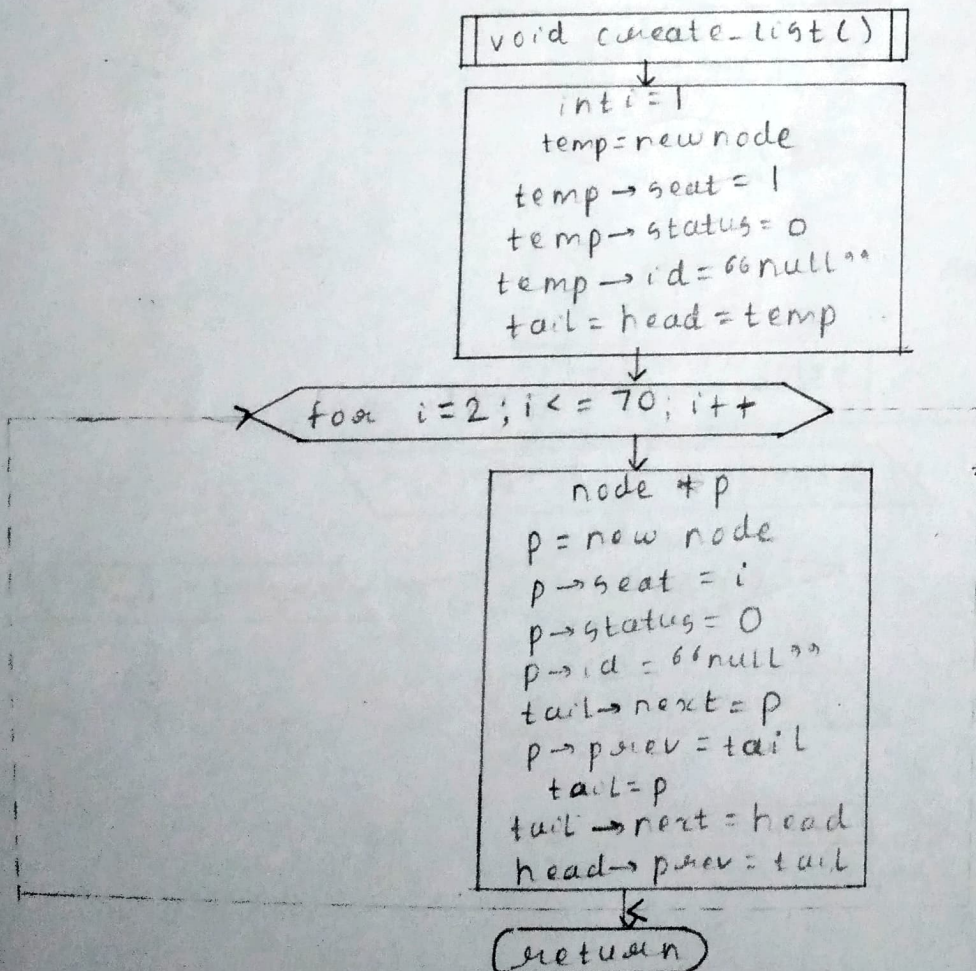 void create_list()
int i = 1
temp = new node
temp → seat = 1
temp → status = 0
temp → id = “null”
tail = head = temp
for i = 2 ; i < = 70 ; i + +
node * p
p = new node
p → seat = i
p → status = 0
p → id = “null”
tail → next = p
p → prev = tail
tail = p
tail → next = head
head → prev = tail
return